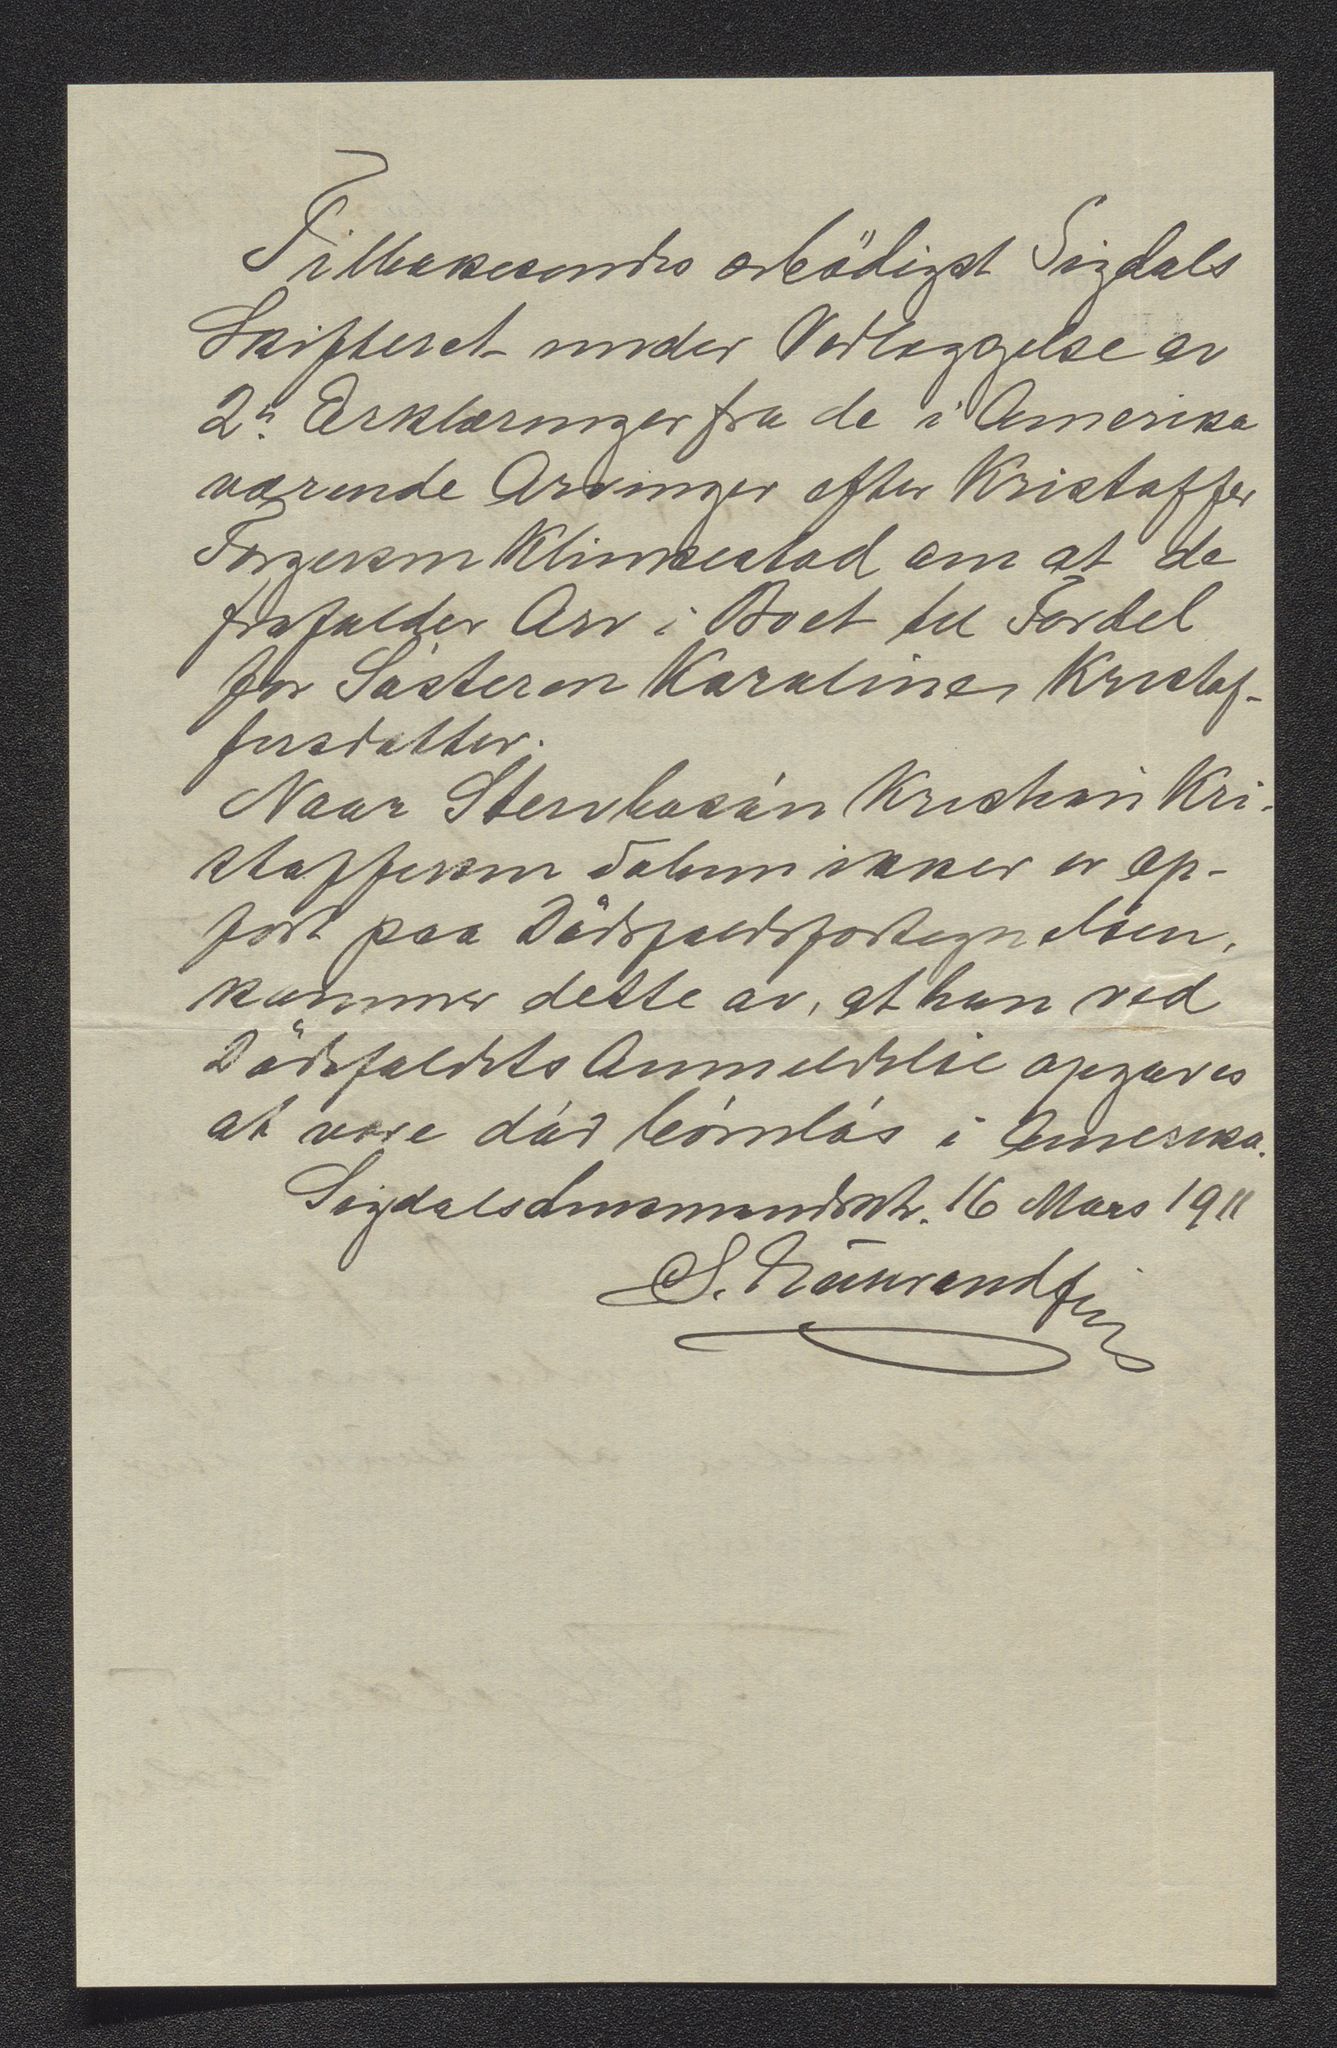 Tilbakesendes ærbödigst Sigdals
Skifteret under Vedleggelse av
2n Erklæringer fra de i Amerika
værende Arvinger efter Kristoffer
Torgersen Klimsestad om at de
frafalder Arv i Boet til Fordel
for Søsteren Karoline Kristof-
fersdatter.
Naar Stervbosøn Kristian Kri-
stoffersen ikker er op-
fört paa Dödsfaldsfortegnelsen,
kommer dette av, at han ved
Dödsfaldets Anmeldelse opgaves
at være död börnlös i Amerika.
Sigdals Lensmandsktr. 16 Mars 1911
S.